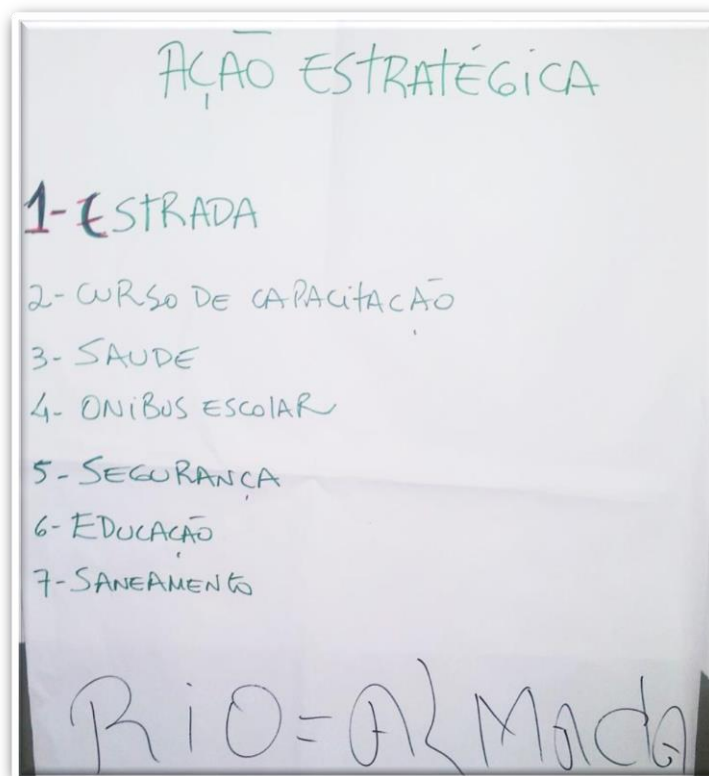 AÇÃO ESTRATÉGICA
1-ESTRADA
2- CURSO DE CAPACITAÇÃO
3- SAUDE
4- ONIBUS ESCOLAR
5- SEGURANÇA
6- EDUCAÇÃO
7- SANEAMENTO
RiO = AlMada